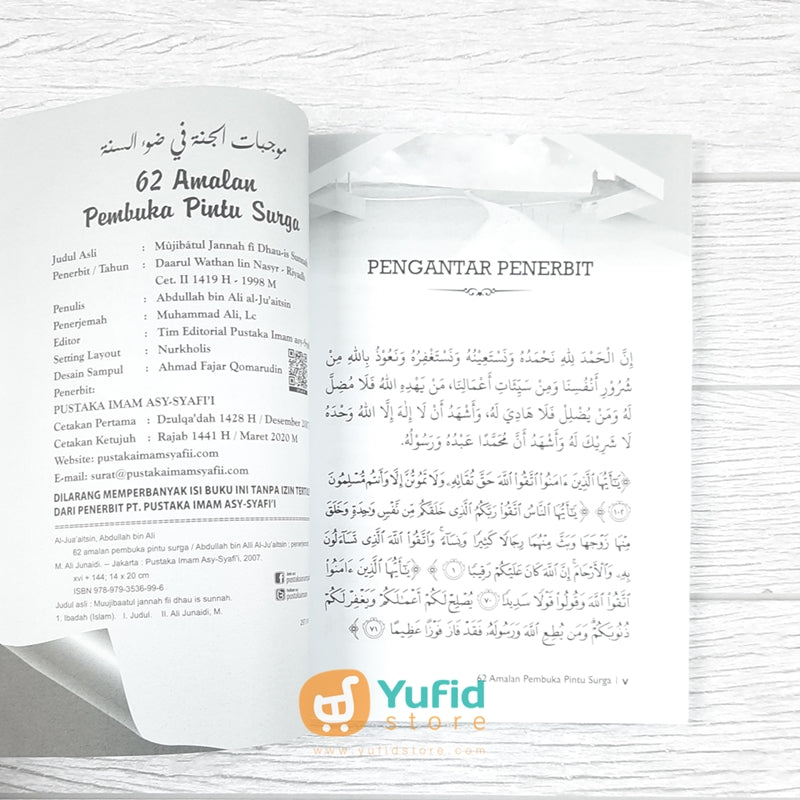 موجبات الجنة في ضوء السنة
62 Amalan
Pembuka Pintu Surga
Judul Asli : Mûjibâtul Jannah fî Dhau-is Sunnah
Penerbit / Tahun : Daarul Wathan lin Nasyr - Riyadh
Cet. II 1419 H - 1998 M
Penulis : Abdullah bin Ali al-Ju'aitsin
Penerjemah : Muhammad Ali, Lc
Editor : Tim Editorial Pustaka Imam
Setting Layout : Nurkholis
Desain Sampul : Ahmad Fajar Qomarudin
Penerbit:
PUSTAKA IMAM ASY-SYAFI'I
Cetakan Pertama : Dzulqa'dah 1428 H / Desember
Cetakan Ketujuh : Rajab 1441 H / Maret 2020 M
Website: pustakaimamsyafii.com
E-mail: surat@pustakaimamsyafii.com
DILARANG MEMPERBANYAK ISI BUKU INI TANPA IZIN
DARI PENERBIT PT. PUSTAKA IMAM ASY-SYAFI'I
Al-Jua'aitsin, Abdullah bin Ali
62 amalan pembuka pintu surga / Abdullah bin Alli Al-Ju'aitsin ; penerjemah,
M. Ali Junaidi. – Jakarta : Pustaka Imam Asy-Syafi'i, 2007.
xvi + 144; 14 x 20 cm
ISBN 978-979-3536-99-6
Judul asli : Muujibaatul jannah fii dhau is sunnah.
1. Ibadah (Islam). I. Judul. II. Ali Junaidi, M.
PENGANTAR PENERBIT
إِنَّ الْحَمْدَ لِلَّهِ نَحْمَدُهُ وَنَسْتَعِيْنُهُ وَنَسْتَغْفِرُهُ وَنَعُوْذُ بِاللهِ مِنْ
شُرُوْرِ أَنْفُسِنَا وَمِنْ سَيِّئَاتِ أَعْمَالِنَا، مَنْ يَهْدِهِ اللهُ فَلَا مُضِلَّ
لَهُ وَمَنْ يُضْلِلْ فَلَا هَادِيَ لَهُ، وَأَشْهَدُ أَنْ لَا إِلَهَ إِلَّا اللهُ وَحْدَهُ
لَا شَرِيْكَ لَهُ وَأَشْهَدُ أَنَّ مُحَمَّدًا عَبْدُهُ وَرَسُوْلُهُ.
﴿يَٰٓأَيُّهَا ٱلَّذِينَ ءَامَنُوا۟ ٱتَّقُوا۟ ٱللَّهَ حَقَّ تُقَاتِهِۦ وَلَا تَمُوتُنَّ إِلَّا وَأَنتُم مُّسْلِمُونَ
١٠٢﴾ ﴿يَٰٓأَيُّهَا ٱلنَّاسُ ٱتَّقُوا۟ رَبَّكُمُ ٱلَّذِى خَلَقَكُم مِّن نَّفْسٍ وَٰحِدَةٍ وَخَلَقَ
مِنْهَا زَوْجَهَا وَبَثَّ مِنْهُمَا رِجَالًا كَثِيرًا وَنِسَآءً ۚ وَٱتَّقُوا۟ ٱللَّهَ ٱلَّذِى تَسَآءَلُونَ
بِهِۦ وَٱلْأَرْحَامَ ۚ إِنَّ ٱللَّهَ كَانَ عَلَيْكُمْ رَقِيبًا ١﴾ ﴿يَٰٓأَيُّهَا ٱلَّذِينَ ءَامَنُوا۟
ٱتَّقُوا۟ ٱللَّهَ وَقُولُوا۟ قَوْلًا سَدِيدًا ٧٠ يُصْلِحْ لَكُمْ أَعْمَٰلَكُمْ وَيَغْفِرْ لَكُمْ
ذُنُوبَكُمْ ۗ وَمَن يُطِعِ ٱللَّهَ وَرَسُولَهُۥ فَقَدْ فَازَ فَوْزًا عَظِيمًا ٧١﴾
62 Amalan Pembuka Pintu Surga | v
Yufid
store
www.yufidstore.com